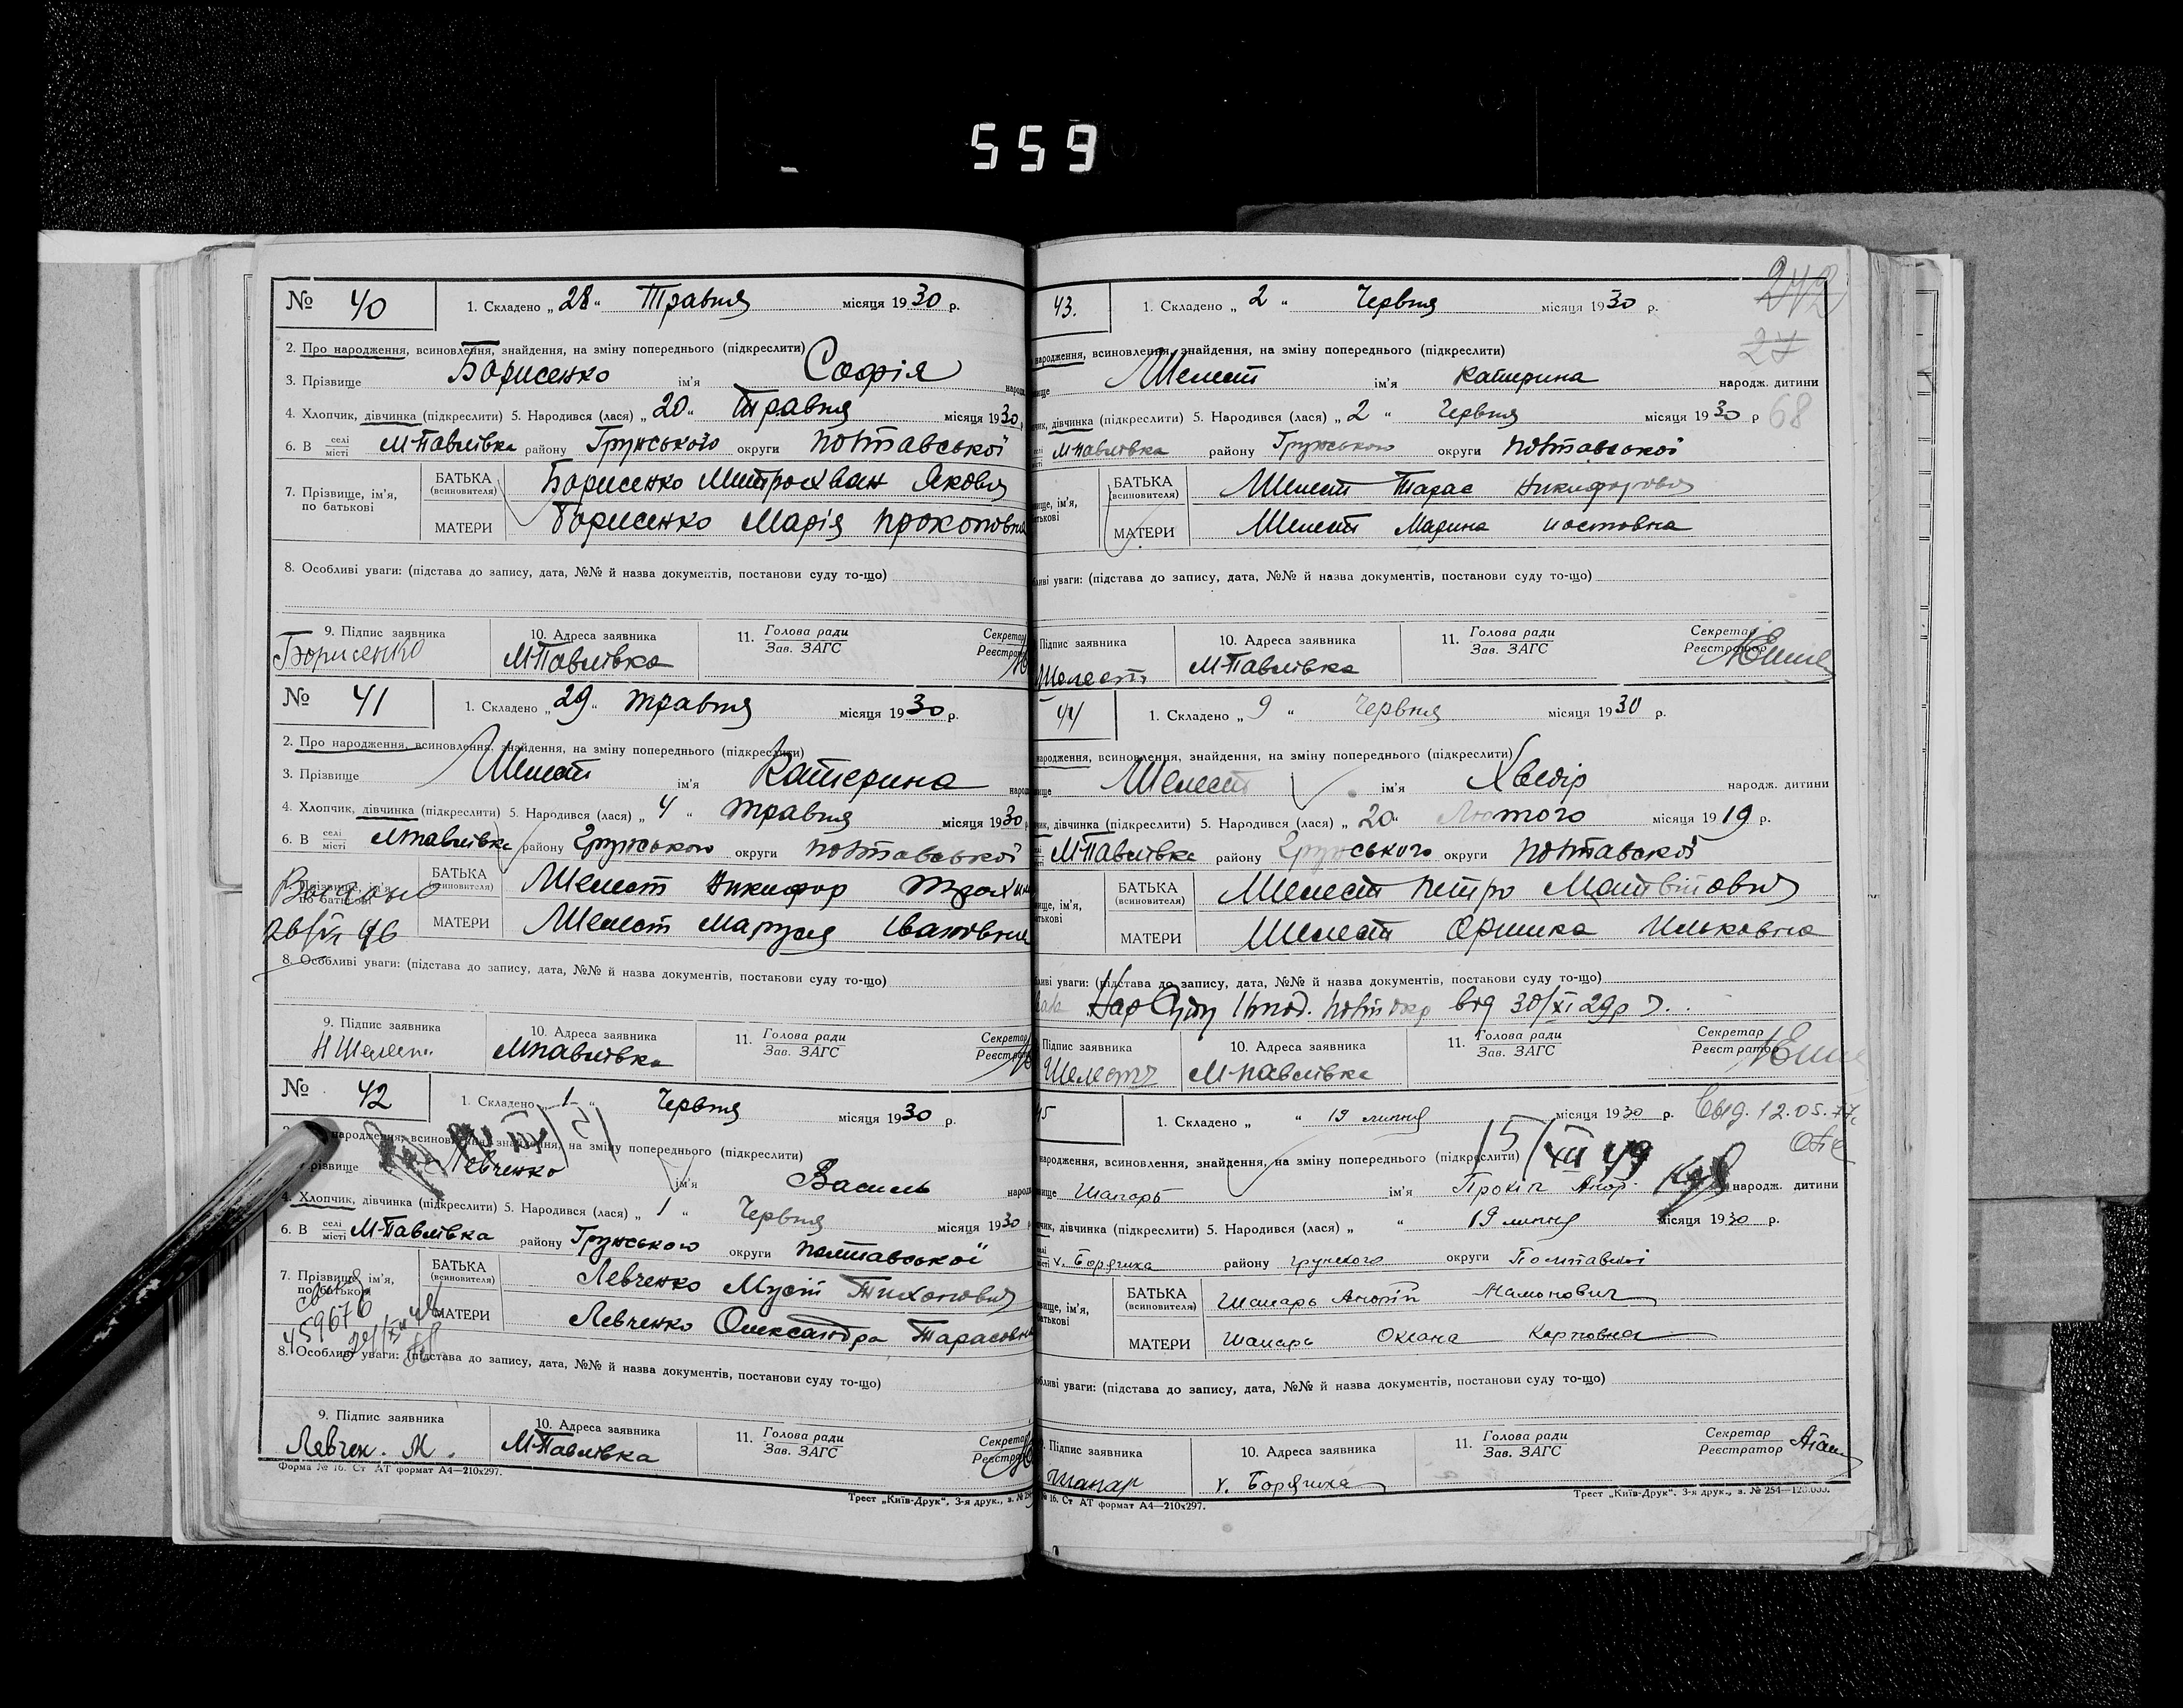 559
№ 40
1. Складено „ 28 “ Травня місяця 1930 р.
2. Про народження, всиновлення, знайдення, на зміну попереднього (підкреслити)
3. Прізвище Борисенко ім'я Софія
4. Хлопчик, дівчинка (підкреслити) 5. Народився (лася) „ 20 “ Травня місяця 1930
6. В селі місті М-Павлівка району Грунського округи Полтавської
7. Прізвище, ім'я, по батькові
БАТЬКА (всиновителя) Борисенко Митрохван Якович
МАТЕРИ Борисенко Марія Прокоповна
8. Особливі уваги: (підстава до запису, дата, №№ й назва документів, постанови суду то-що)
9. Підпис заявника Борисенко
10. Адреса заявника М-Павлівка
11. Голова ради Зав. ЗАГС
Секретар
№ 41
1. Складено „ 29 “ травня місяця 1930 р.
2. Про народження, всиновлення, знайдення, на зміну попереднього (підкреслити)
3. Прізвище Шелест ім'я Катерина
4. Хлопчик, дівчинка (підкреслити) 5. Народився (лася) „ 4 “ травня місяця 1930
6. В селі місті М-Павлівка району Грунського округи Полтавської
7. Прізвище, ім'я, по батькові
БАТЬКА (всиновителя) Шелест Никифор
МАТЕРИ Шелест Маруся Івановна
8. Особливі уваги: (підстава до запису, дата, №№ й назва документів, постанови суду то-що)
9. Підпис заявника Н Шелест
10. Адреса заявника М-Павлівка
11. Голова ради Зав. ЗАГС
Секретар
№ 42
1. Складено „ 1 “ Червня місяця 1930 р.
народження, всиновлення, знайдення, на зміну попереднього (підкреслити)
Левченко ім'я Василь
4. Хлопчик, дівчинка (підкреслити) 5. Народився (лася) „ 1 “ Червня місяця 1930
6. В селі місті М-Павлівка району Грунського округи Полтавської
7. Прізвище, ім'я, по батькові
БАТЬКА (всиновителя) Левченко Мусій Тихонович
МАТЕРИ Левченко Олександра Тарасовна
8. Особливі уваги: (підстава до запису, дата, №№ й назва документів, постанови суду то-що)
9. Підпис заявника Левчен. М.
10. Адреса заявника М-Павлівка
11. Голова ради Зав. ЗАГС
Секретар
Форма № 16. Ст АТ формат А4—210х297.
Трест „Київ-Друк“. 3-я друк., з. №
43.
1. Складено „ 2 “ Червня місяця 1930 р.
242
27
народження, всиновлення, знайдення, на зміну попереднього (підкреслити)
Шелест ім'я Катерина народж. дитини
дівчинка (підкреслити) 5. Народився (лася) „ 2 “ Червня місяця 1930 р
68
М-Павлівка району Грунського округи Полтавської
БАТЬКА (всиновителя) Шелест Тарас Никифорович
МАТЕРИ Шелест Марина
уваги: (підстава до запису, дата, №№ й назва документів, постанови суду то-що)
Підпис заявника Шелест
10. Адреса заявника М-Павлівка
11. Голова ради Зав. ЗАГС
Секретар Реєстратор
44
1. Складено „ 9 “ Червня місяця 1930 р.
народження, всиновлення, знайдення, на зміну попереднього (підкреслити)
Шелест ім'я Хведір народж. дитини
дівчинка (підкреслити) 5. Народився (лася) „ 20 “ Лютого місяця 1919 р.
М-Павлівка району Грунського округи Полтавської
БАТЬКА (всиновителя) Шелест Петро Матвійович
МАТЕРИ Шелест Оришка Ильковна
уваги: (підстава до запису, дата, №№ й назва документів, постанови суду то-що)
Нар Суду від 30/XI 29р
Підпис заявника Шелест
10. Адреса заявника М-Павлівка
11. Голова ради Зав. ЗАГС
Секретар Реєстратор
45
1. Складено „ “ 19 липня місяця 1930 р.
12.05.77
народження, всиновлення, знайдення, на зміну попереднього (підкреслити)
15/XII 49
Шапарь ім'я Прокіп народж. дитини
дівчинка (підкреслити) 5. Народився (лася) „ “ 19 липня місяця 1930 р.
х. Борячиха району Грунского округи Полтавскої
БАТЬКА (всиновителя) Шапарь Андрій Мамонович
МАТЕРИ Шапарь Оксана Карповна
уваги: (підстава до запису, дата, №№ й назва документів, постанови суду то-що)
Підпис заявника Шапар
10. Адреса заявника х. Борячиха
11. Голова ради Зав. ЗАГС
Секретар Реєстратор
№ 16. Ст АТ формат А4—210х297.
Трест „Київ-Друк“. 3-я друк., з. № 254—120.000.